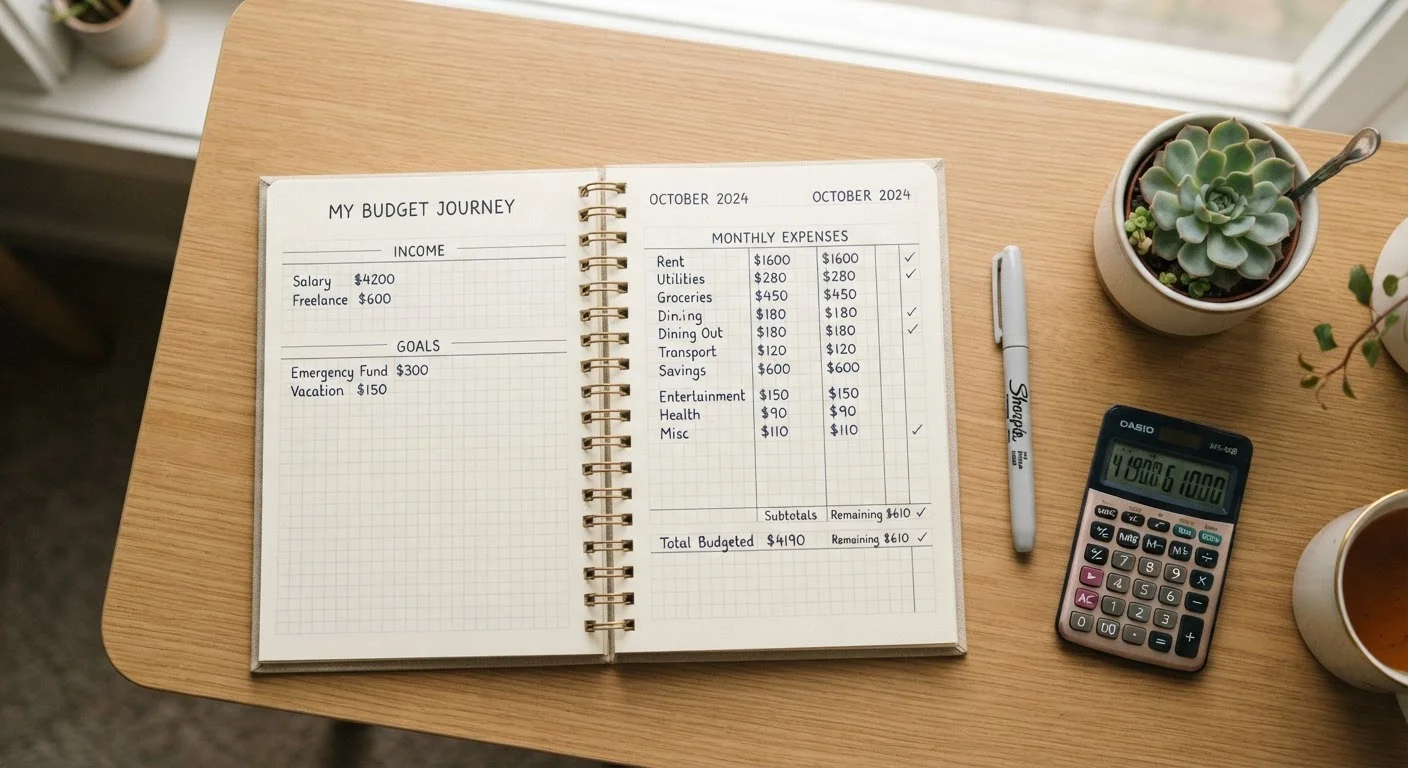 MY BUDGET JOURNEY
INCOME
Salary $4200
Freelance $600
GOALS
Emergency Fund $300
Vacation $150
OCTOBER 2024 OCTOBER 2024
MONTHLY EXPENSES
Rent $1600 $1600 ✓
Utilities $280 $280 ✓
Groceries $450 $450
Din.ing $180 $180 ✓
Dining Out $180 $180 ✓
Transport $120 $120
Savings $600 $600
Entertainment $150 $150
Health $90 $90
Misc $110 $110 ✓
Subtotals Remaining $610 ✓
Total Budgeted $4190 Remaining $610 ✓
OASIO
7 8 9 ×
4 5 6 −
AC 1 2 3 +
0 00 · =